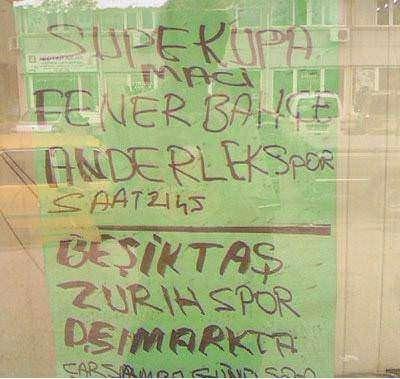 SUPEKUPA
MACI
FENERBAHCE
ANDERLEKSPOR
SAAT 21 45
BEŞİKTAŞ
ZURIHSPOR
DŞIMARKTA
ÇARŞAMBA GÜNÜ